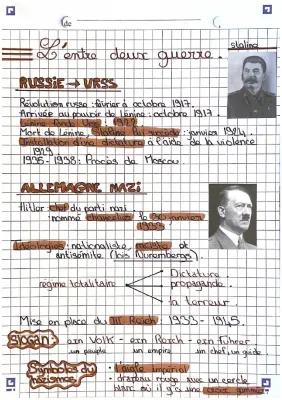 de
L'entre deux guerre.
Staline
RUSSIE → URSS
Révolution russe : février à octobre 1917.
Arrivée au pouvoir de Lénine : octobre 1917.
Lénine fonde
Mort de Lénine, Staline lui succède : janvier 1924.
Installation d'une dictature à l'aide de la violence
1929
1936-1938 : Procès de Moscou.
ALLEMAGNE NAZI
Hitler : chef du parti nazi.
nommé chancelier le 30 janvier
1933
Idéologies : nationaliste, raciste et
antisémite (lois Nuremberg).
régime totalitaire
Dictature.
propagande.
la terreur.
Mise en place du III Reich : 1933-1945.
Slogan : ein Volk - ein Reich - ein Führer
un peuple un empire un chef, un guide.
Symboles du nazisme
• l'aigle impérial
• drapeau rouge avec un cercle
blanc où il y a une croix gammée